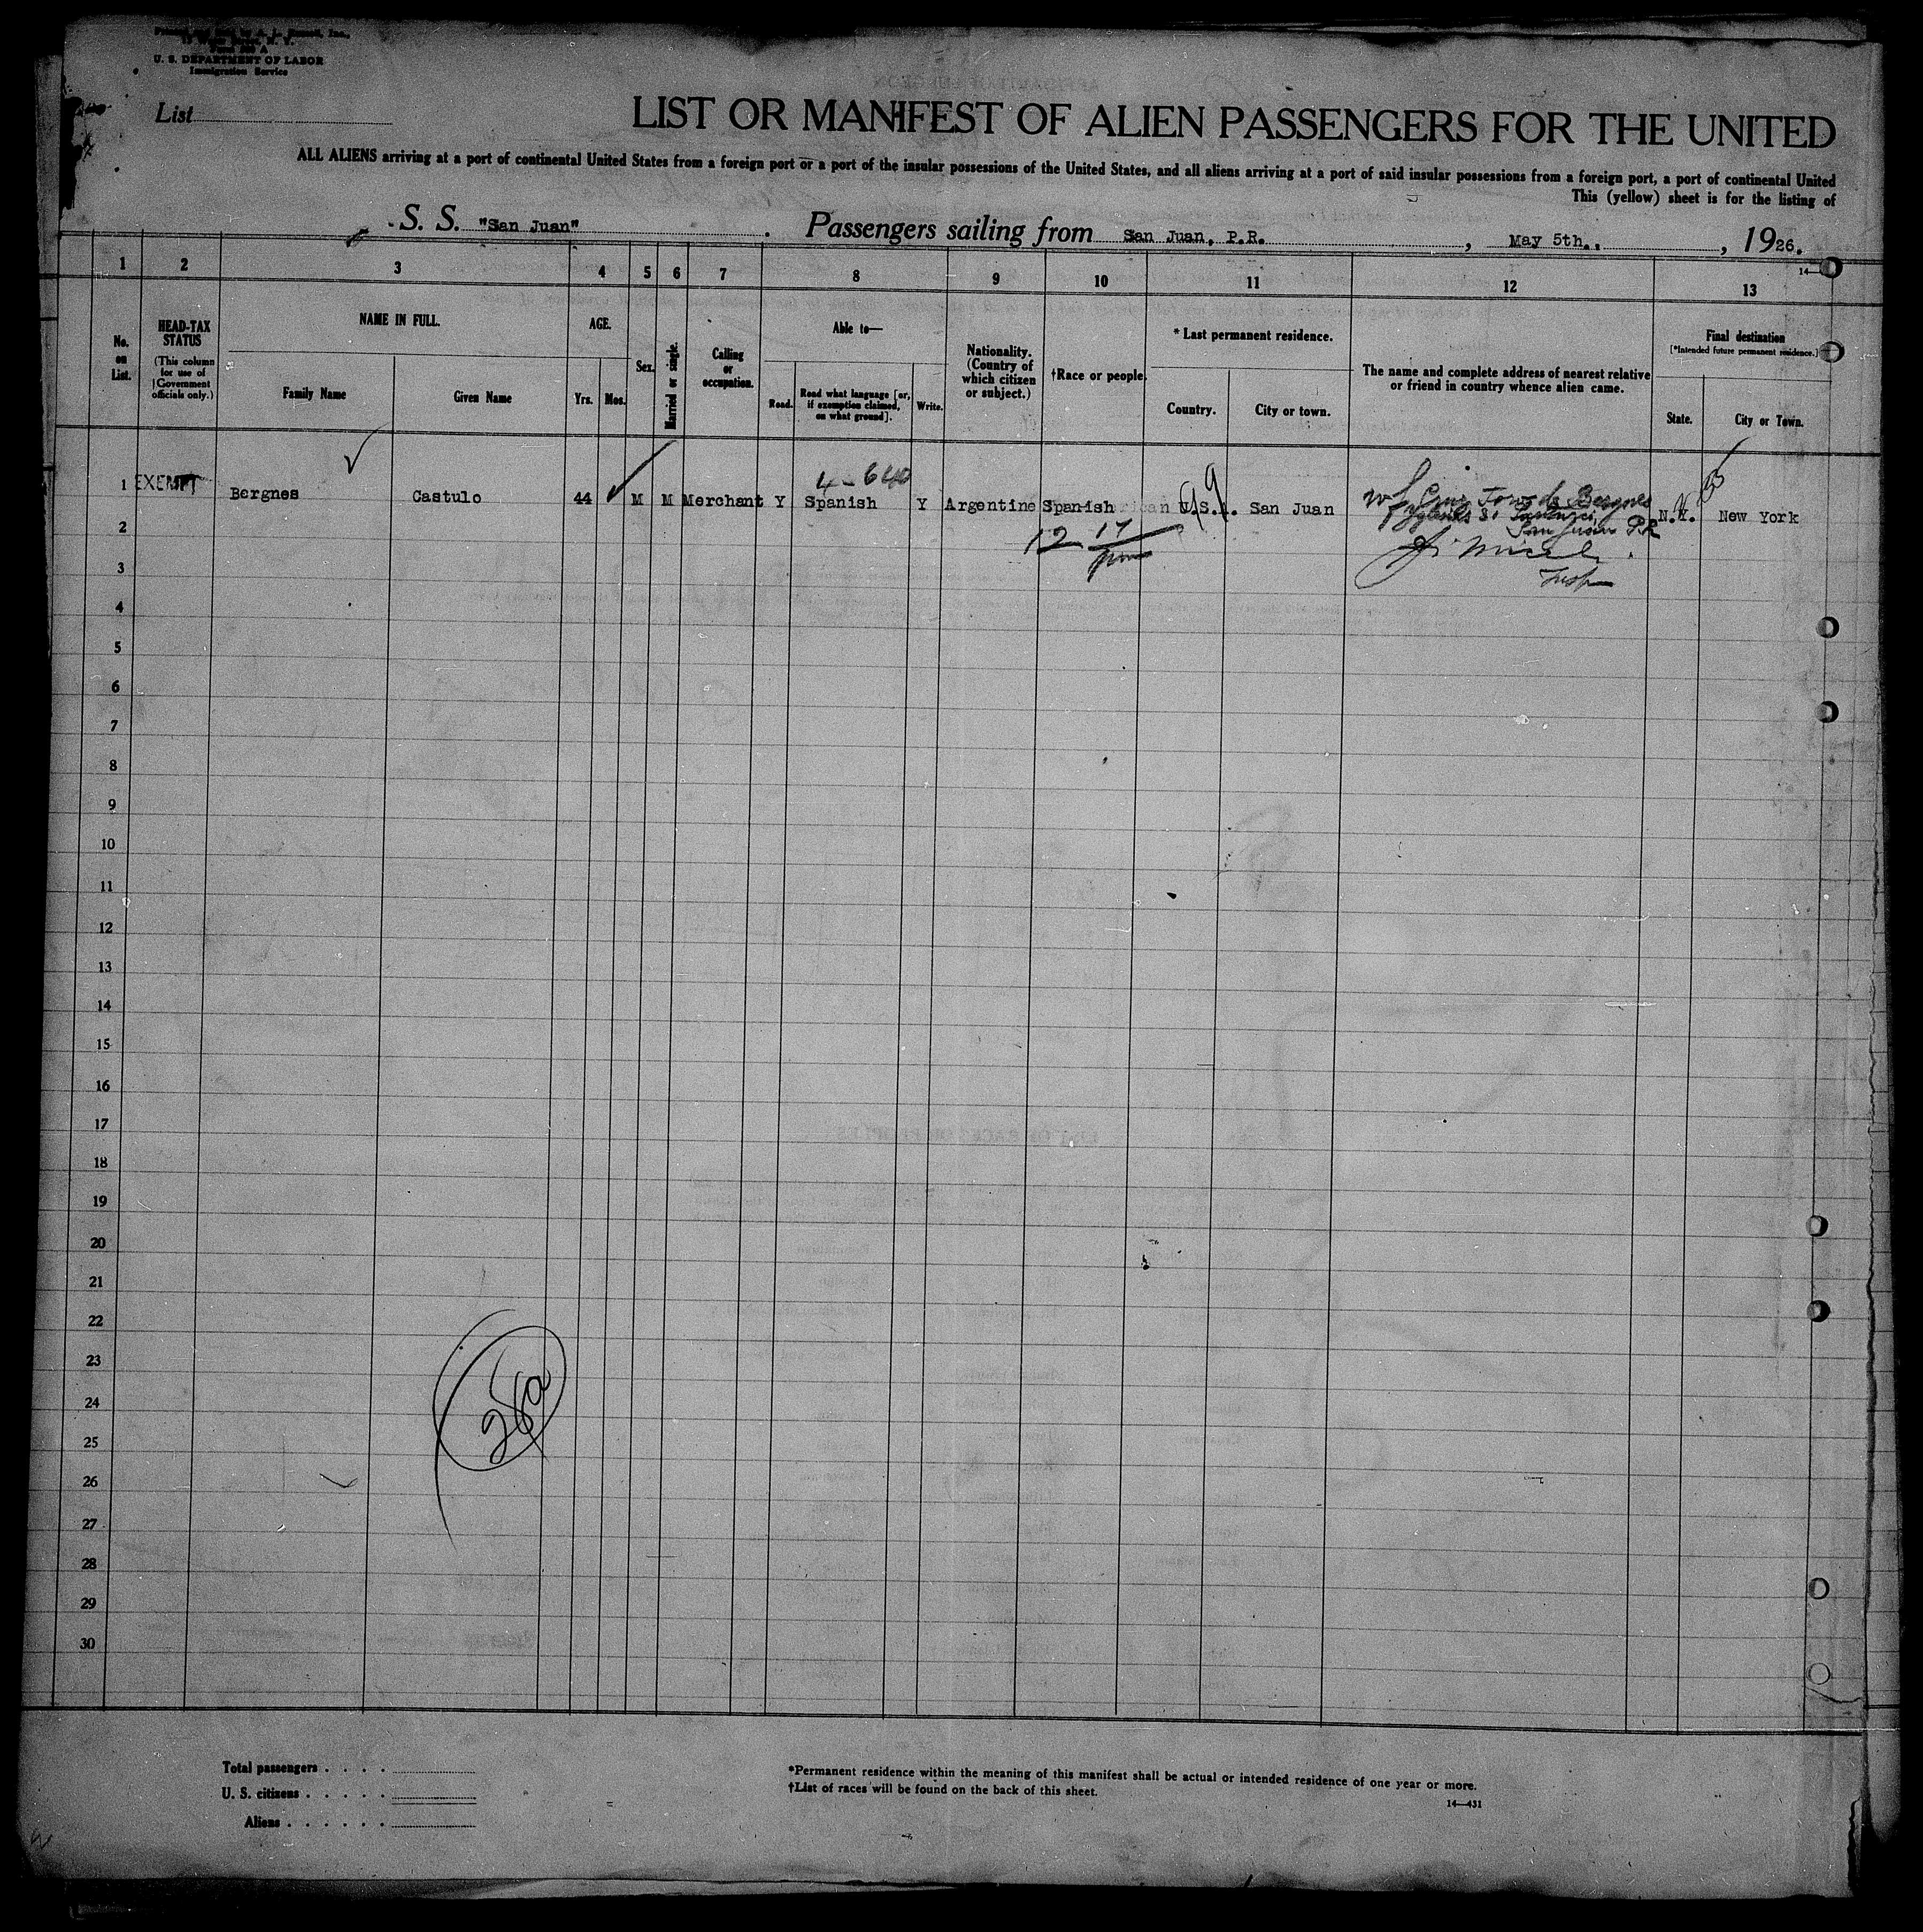 U. S. DEPARTMENT OF LABOR
Immigration Service
List
LIST OR MANIFEST OF ALIEN PASSENGERS FOR THE UNITED
ALL ALIENS arriving at a port of continental United States from a foreign port or a port of the insular possessions of the United States, and all aliens arriving at a port of said insular possessions from a foreign port, a port of continental United
This (yellow) sheet is for the listing of
S. S. "San Juan" Passengers sailing from San Juan, P.R. , May 5th., , 1926.
1 2 3 4 5 6 7 8 9 10 11 12 13
14—
No. on List.
HEAD-TAX STATUS
(This column for use of Government officials only.)
NAME IN FULL.
Family Name
Given Name
AGE.
Yrs.
Mos.
Sex.
Married or single.
Calling or occupation.
Able to—
Read.
Read what language [or, if exemption claimed, on what ground].
Write.
Nationality. (Country of which citizen or subject.)
†Race or people.
* Last permanent residence.
Country.
City or town.
The name and complete address of nearest relative or friend in country whence alien came.
Final destination
[*Intended future permanent residence.]
State.
City or Town.
4-640
1 EXEMPT Bergnes Castulo 44 M M Merchant Y Spanish Y Argentine Spanish U.S.A. San Juan N.Y. New York
de Bergnes
San Juan P.R.
12 17
Insp
2
3
4
5
6
7
8
9
10
11
12
13
14
15
16
17
18
19
20
21
22
23
24
25
26
27
28
29
30
Total passengers . . . .
U. S. citizens . . . . .
Aliens . . . . . .
*Permanent residence within the meaning of this manifest shall be actual or intended residence of one year or more.
†List of races will be found on the back of this sheet.
14—431